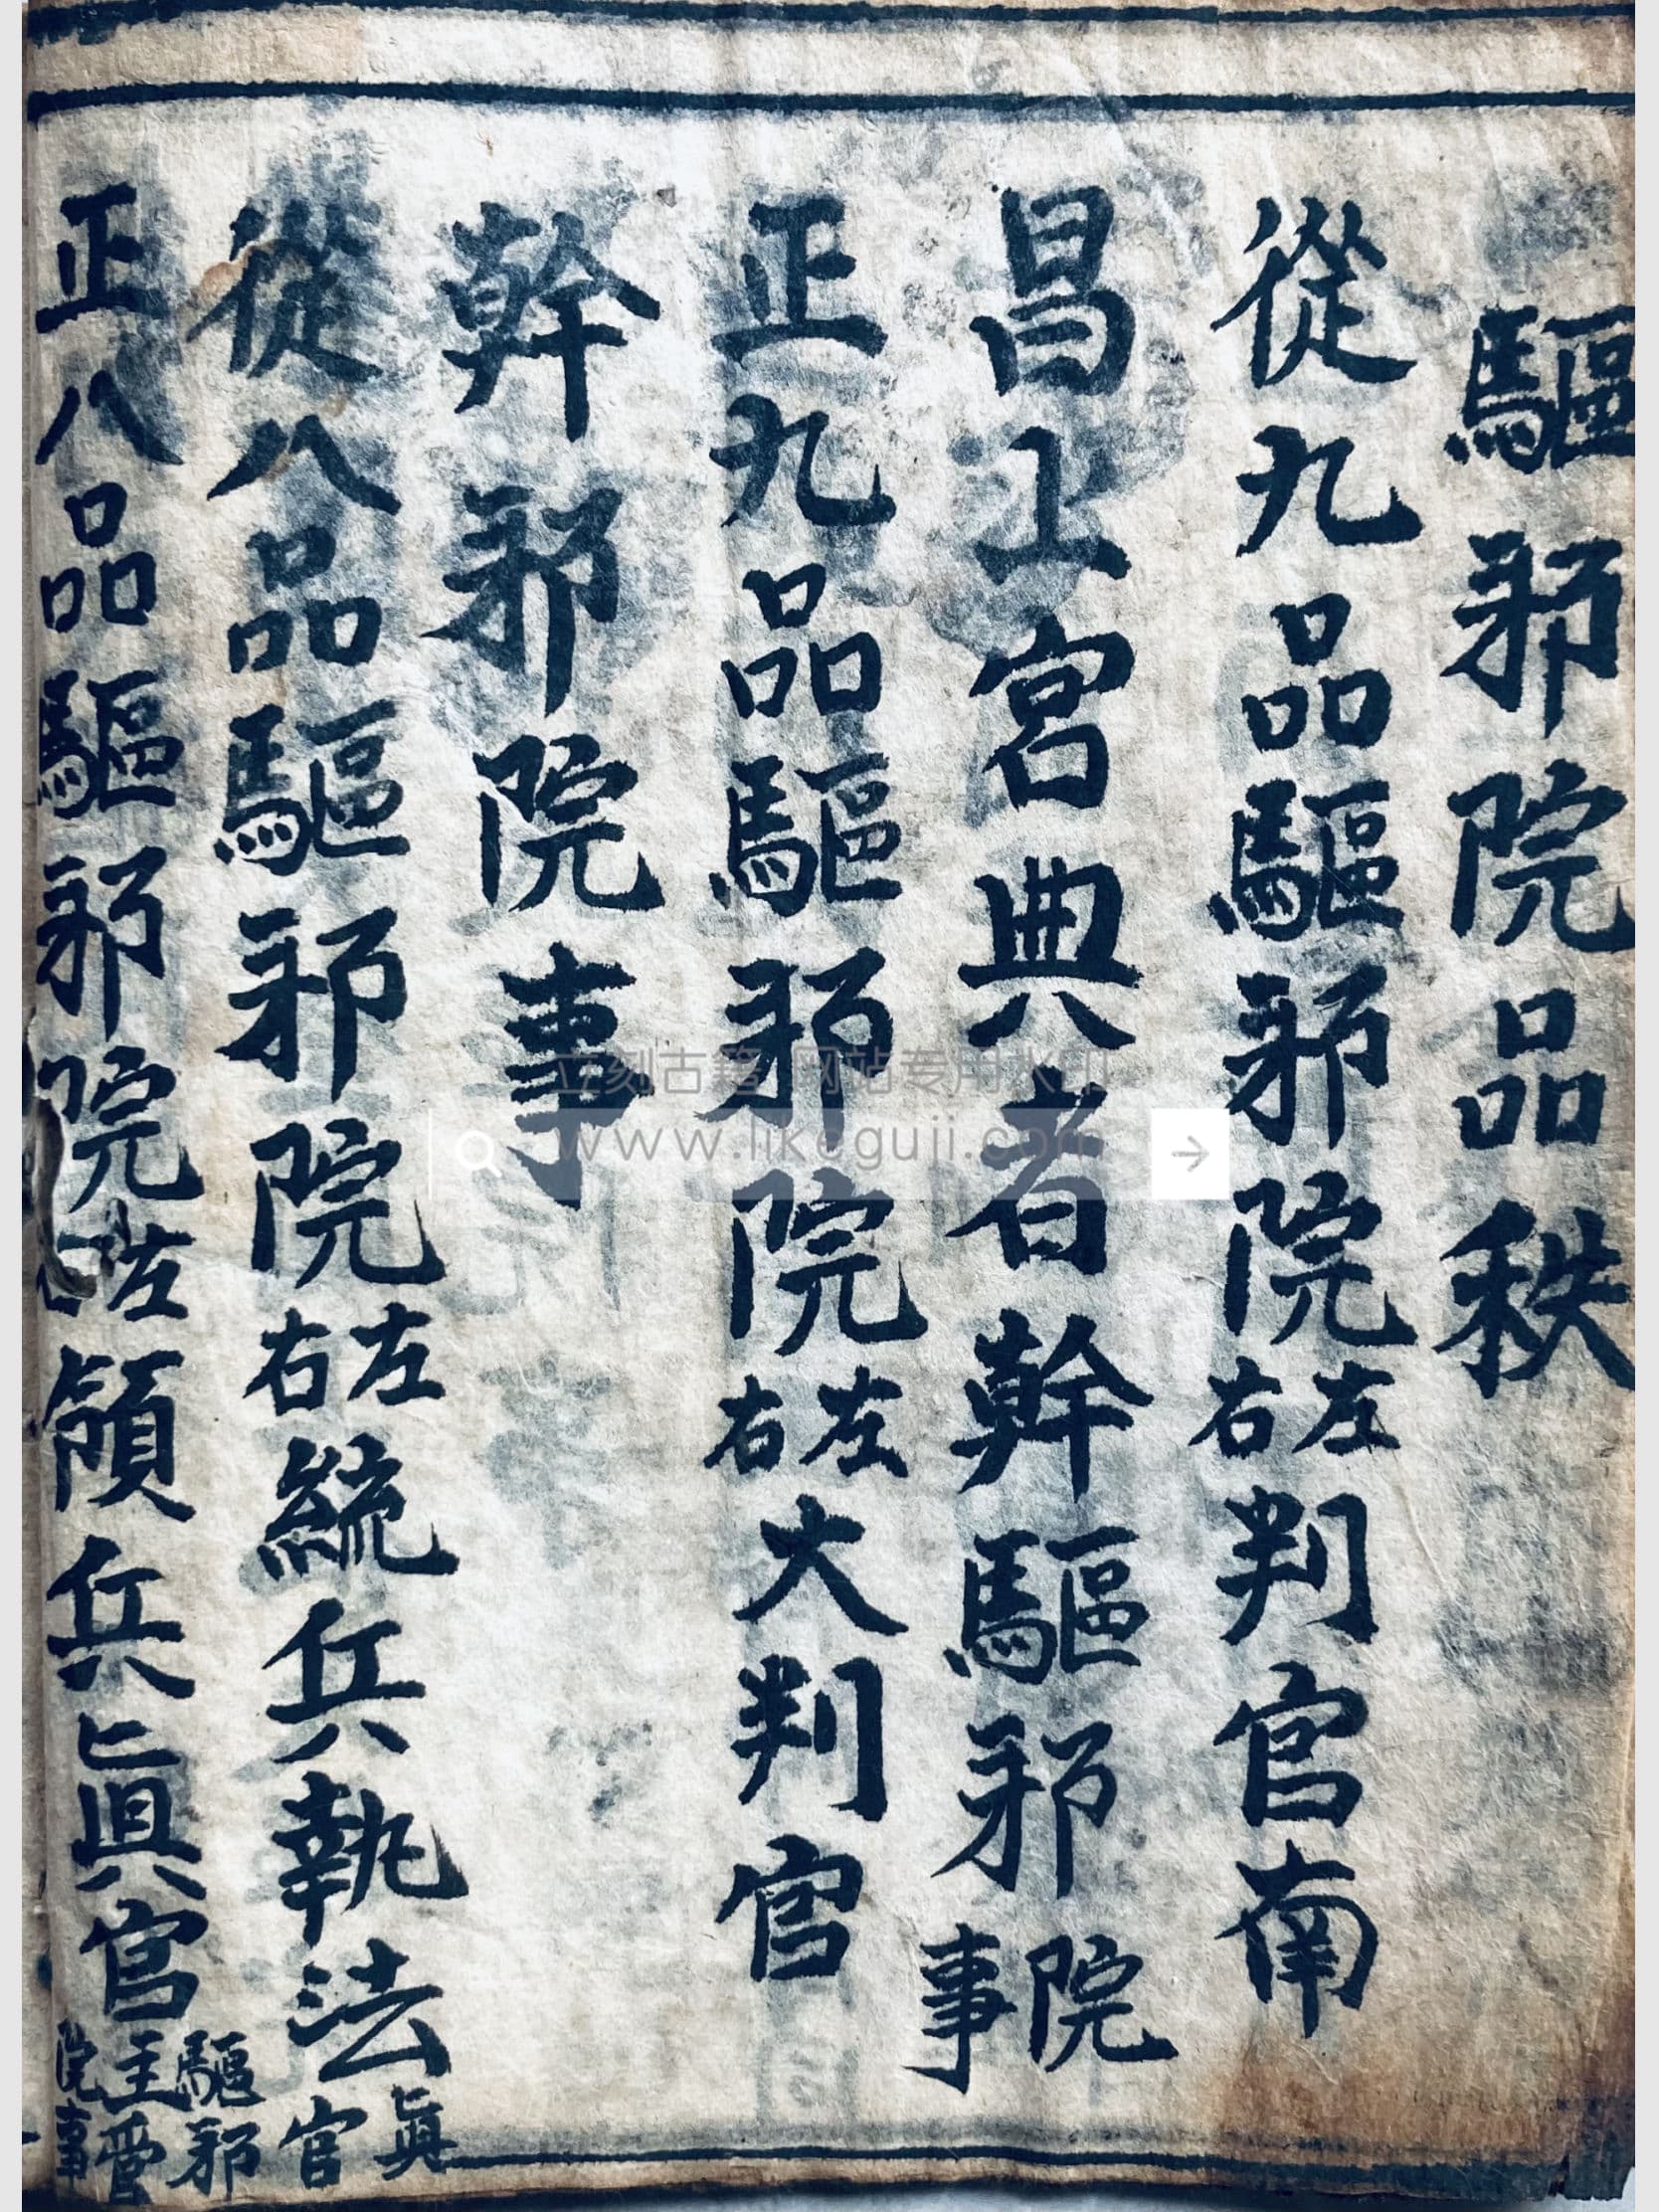 驅邪院品秩
從九品驅邪院左右判官南
昌上宮典者幹驅邪院事
正九品驅邪院左右大判官
幹邪院事
從八品驅邪院左右統兵執法真官
正八品驅邪院左領兵真官驅邪主管院事
立刻古籍 网站专用水印
www.likeguji.com